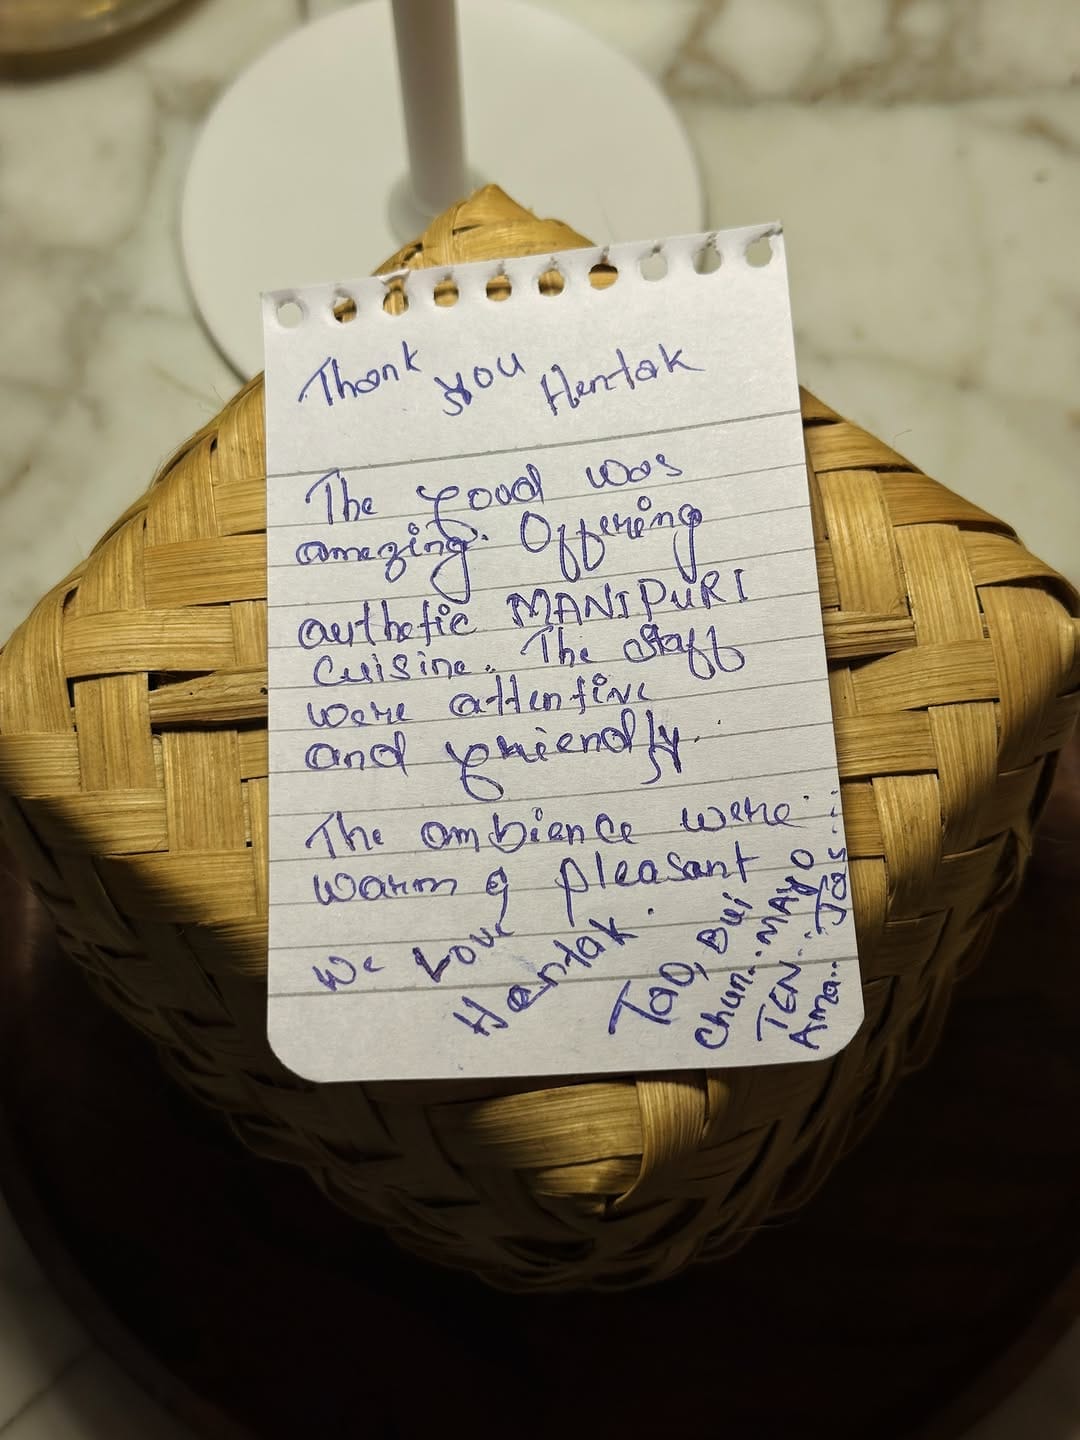 Thank you Hentak
The food was
amazing. Offering
authetic MANIPURI
cuisine. The staff
were attentive
and friendly.
The ambience were
warm & pleasant
We Love
Hentak.
Tao, Bui
Chun... MAYO
TEN... Jas...
Ama..